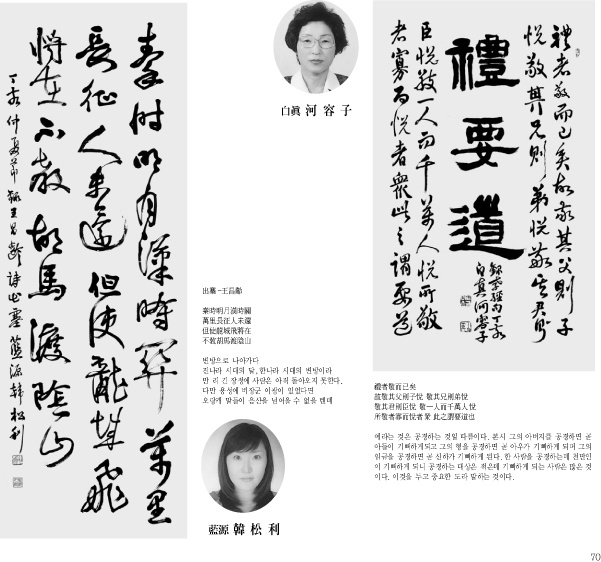 秦時明月漢時關萬里
長征人未還但使龍城飛
將在不教胡馬渡陰山
丁亥仲夏節 錄王昌齡詩出塞 藍源韓松利
白眞 河容子
出塞-王昌齡
秦時明月漢時關
萬里長征人未還
但使龍城飛將在
不敎胡馬渡陰山
변방으로 나아가다
진나라 시대의 달, 한나라 시대의 변방이라
만 리 긴 장정에 사람은 아직 돌아오지 못한다.
다만 용성에 비장군 이광이 있었다면
오랑캐 말들이 음산을 넘어올 수 없을 텐데
藍源 韓松利
禮要道
禮者敬而已矣故敬其父則子
悅敬其兄則弟悅敬其君則
臣悅敬一人而千萬人悅所敬
者寡而悅者衆此之謂要道
錄孝經句丁亥
白眞河容子
禮者敬而已矣
故敬其父則子悅 敬其兄則弟悅
敬其君則臣悅 敬一人而千萬人悅
所敬者寡而悅者衆 此之謂要道也
예라는 것은 공경하는 것일 따름이다. 본시 그의 아버지를 공경하면 곧
아들이 기뻐하게되고 그의 형을 공경하면 곧 아우가 기뻐하게 되며 그의
임금을 공경하면 곧 신하가 기뻐하게 된다. 한 사람을 공경하는데 천만인
이 기뻐하게 되니 공경하는 대상은 적은데 기뻐하게 되는 사람은 많은 것
이다. 이것을 두고 중요한 도라 말하는 것이다.
70